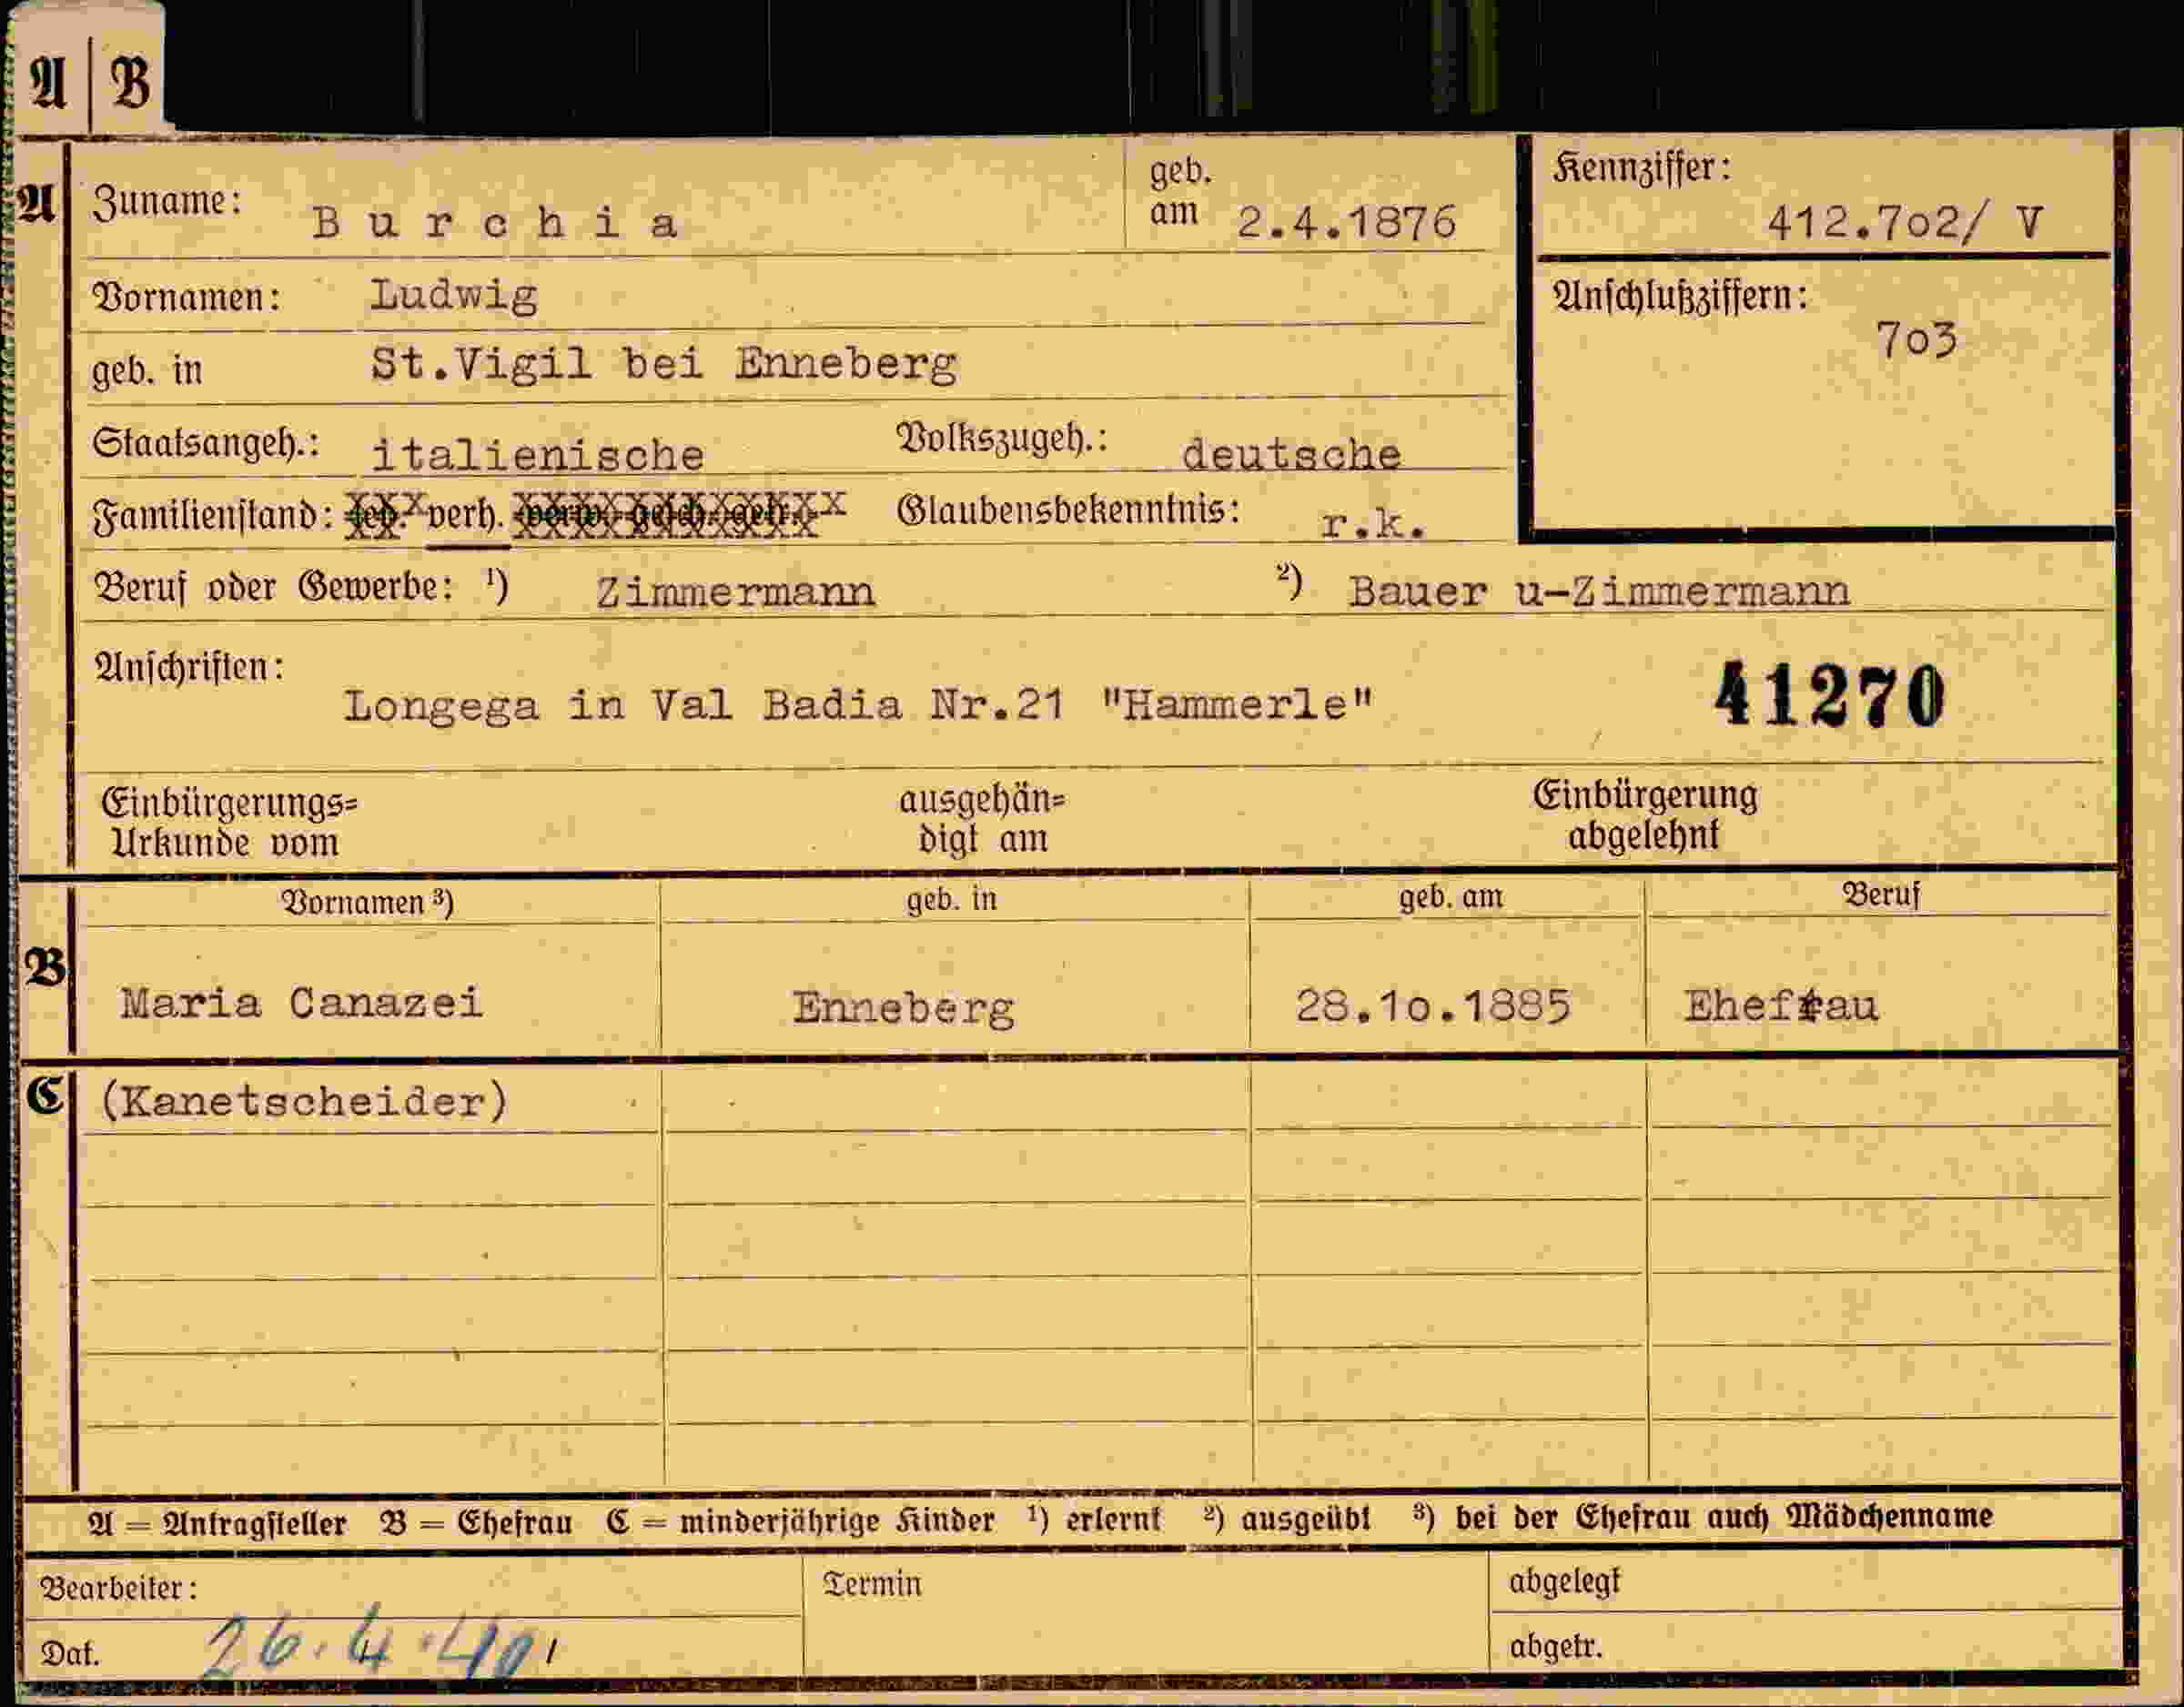 A | B
A
Zuname: Burchia geb. am 2.4.1876
Kennziffer: 412.7o2/ V
Vornamen: Ludwig
Anschlußziffern: 7o3
geb. in St.Vigil bei Enneberg
Staatsangeh.: italienische Volkszugeh.: deutsche
Familienstand: led. verh. verw. gesch. getr. Glaubensbekenntnis: r.k.
Beruf oder Gewerbe: ¹) Zimmermann ²) Bauer u-Zimmermann
Anschriften:
Longega in Val Badia Nr.21 "Hammerle" 41270
Einbürgerungs= Urkunde vom
ausgehän= digt am
Einbürgerung abgelehnt
Vornamen ³) geb. in geb. am Beruf
B
Maria Canazei Enneberg 28.1o.1885 Ehefrau
C (Kanetscheider)
A = Antragsteller B = Ehefrau C = minderjährige Kinder ¹) erlernt ²) ausgeübt ³) bei der Ehefrau auch Mädchenname
Bearbeiter: Termin abgelegt
Dat. 26.4.40 abgetr.